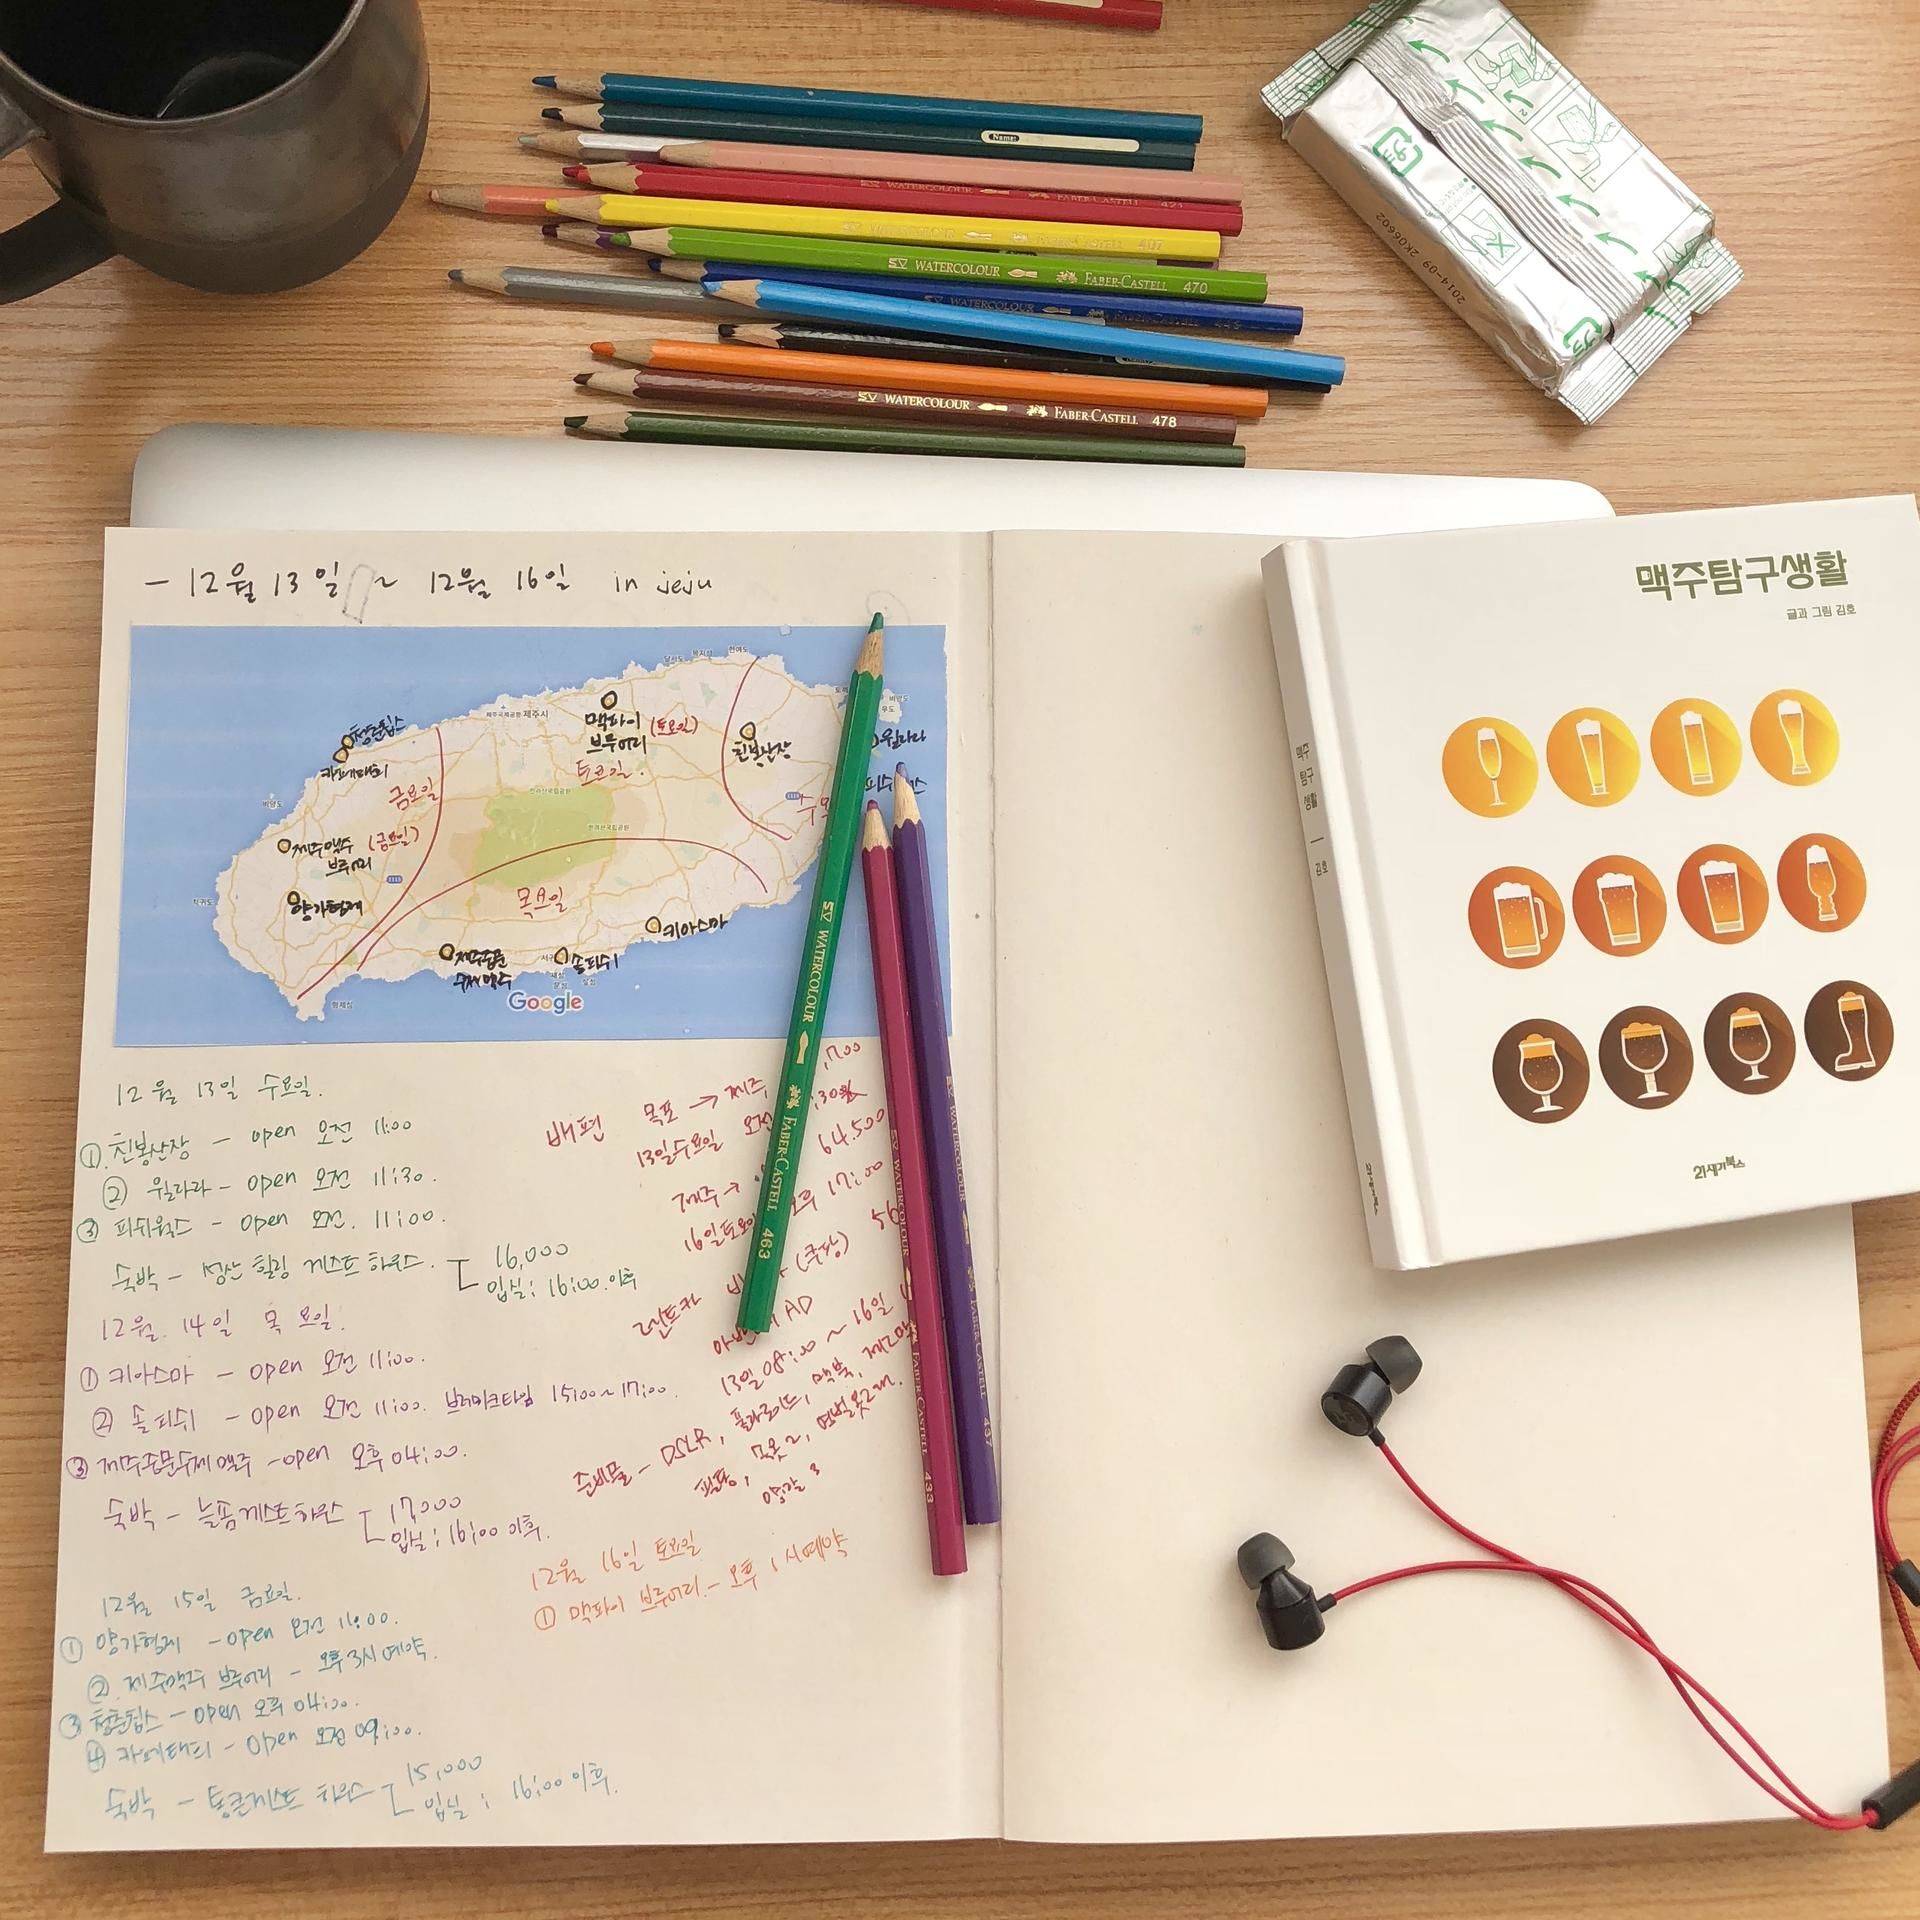 Name:
WATERCOLOUR FABER-CASTELL 421
WATERCOLOUR FABER-CASTELL 407
WATERCOLOUR FABER-CASTELL 470
WATERCOLOUR
WATERCOLOUR FABER-CASTELL 478
2014-09 2K06602
- 12월 13일 ~ 12월 16일 in jeju
청춘칩스
카페태희
맥파이
브루어리
(토요일)
토요일.
친봉산장
윌라라
금요일
제주맥주
브루어리
(금요일)
양가형제
목요일
제주중문
수제맥주
솔피쉬
키아스마
제주국제공항 제주시
한라산국립공원
비양도
우도
형제섬
Google
12월 13일 수요일.
① 친봉산장 - open 오전 11:00
② 윌라라 - open 오전 11:30.
③ 피쉬웍스 - open 오전. 11:00.
숙박 - 성산 힐링 게스트하우스. 16,000
입실: 16:00. 이후
12월. 14일 목요일.
① 키아스마 - open 오전 11:00.
② 솔피쉬 - open 오전 11:00. 브레이크타임 15:00~17:00.
③ 제주중문수제맥주 - open 오후 04:00.
숙박 - 늘품게스트하우스 17,000
입실: 16:00 이후.
12월 15일 금요일.
① 양가형제 - open 오전 11:00.
② 제주맥주 브루어리 - 오후 3시 예약.
③ 청춘칩스 - open 오후 04:00.
④ 카페태희 - open 오전 09:00.
숙박 - 통큰게스트 하우스 15,000
입실: 16:00 이후.
배편 목포 → 제주
13일수요일 오전
64.500
제주 →
16일토요일 오후 17:00
렌트카 (쿠팡)
AD
13일 08:00 ~ 16일
준비물 - DSLR, 폴라로이드, 맥북,
양말 3
12월 16일 토요일
① 맥파이 브루어리 - 오후 1시예약
WATERCOLOUR FABER-CASTELL 463
WATERCOLOUR FABER-CASTELL 433
WATERCOLOUR FABER-CASTELL 437
맥주탐구생활
글과 그림 김호
21세기북스
맥주
탐구
생활
김호
21세기북스